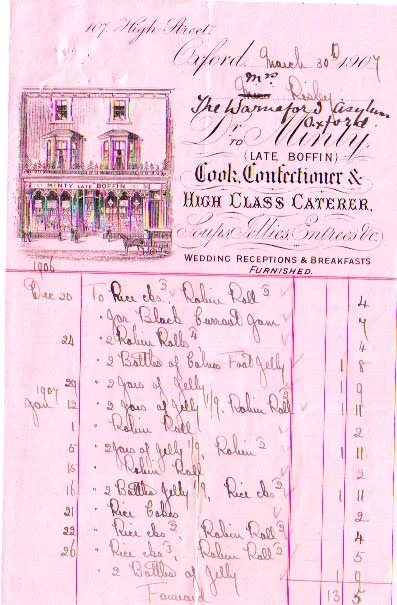 107, High Street,
Oxford, March 30th 1907
Mrs Risby
The Warneford Asylum
Oxford
Dr TO Minty,
(LATE BOFFIN)
Cook, Confectioner &
HIGH CLASS CATERER,
Soups, Jellies, Entrees &c.
WEDDING RECEPTIONS & BREAKFASTS
FURNISHED.
MINTY LATE BOFFIN
1906
Dec 20 To Rice cks 3 Robin Roll 4
" Jar Black Currant Jam 7
24 " 2 Robin Rolls 4
" 2 Bottles of Calves Foot Jelly 1 8
29 " 2 Jars of Jelly 1 9
1907
Jan 12 " 2 Jars of Jelly 1/9, Robin Roll 2 1 11
1 " Robin Roll 2
5 " 2 Jars of Jelly 1/9, Robin 2 1 11
15 " Robin Roll 2
16 " 2 Bottles Jelly 1/9, Rice cks 2 1 11
21 " Rice Cakes 2
22 " Rice cks 2 Robin Roll 2 4
26 " Rice cks 3 Robin Roll 2 5
" 2 Bottles of Jelly 1 9
Forward 13 5